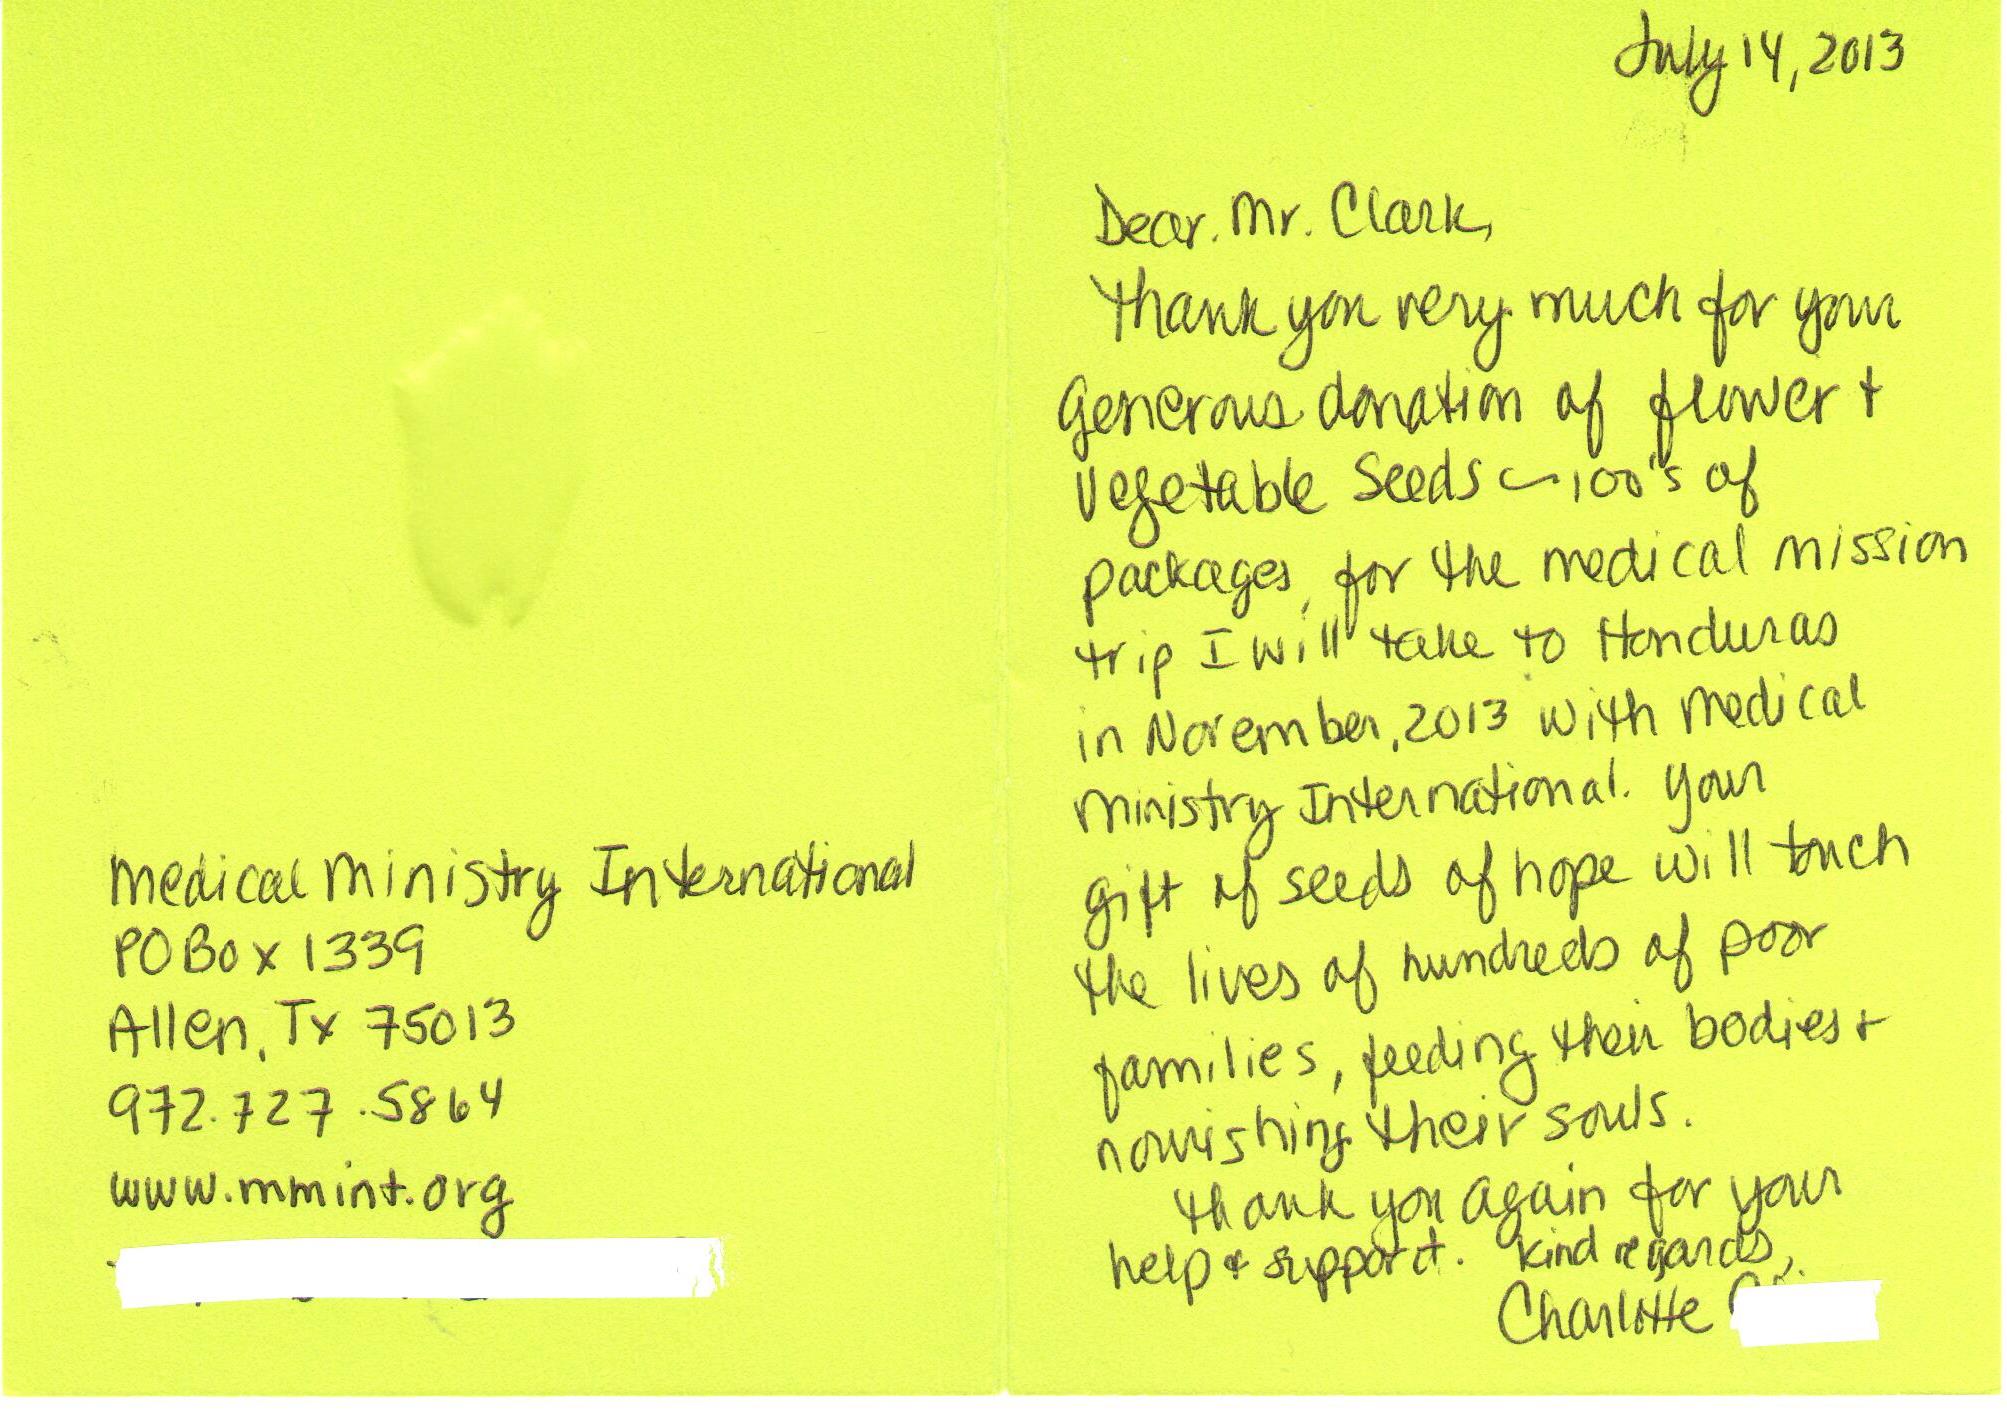 Medical Ministry International
PO Box 1339
Allen, Tx 75013
972.727.5864
www.mmint.org
July 14, 2013
Dear. Mr. Clark,
Thank you very much for your
generous donation of flower +
vegetable seeds ~ 100's of
packages, for the medical mission
trip I will take to Honduras
in November, 2013 with Medical
Ministry International. Your
gift of seeds of hope will touch
the lives of hundreds of poor
families, feeding their bodies +
nourishing their souls.
Thank you again for your
help & support. Kind regards,
Charlotte